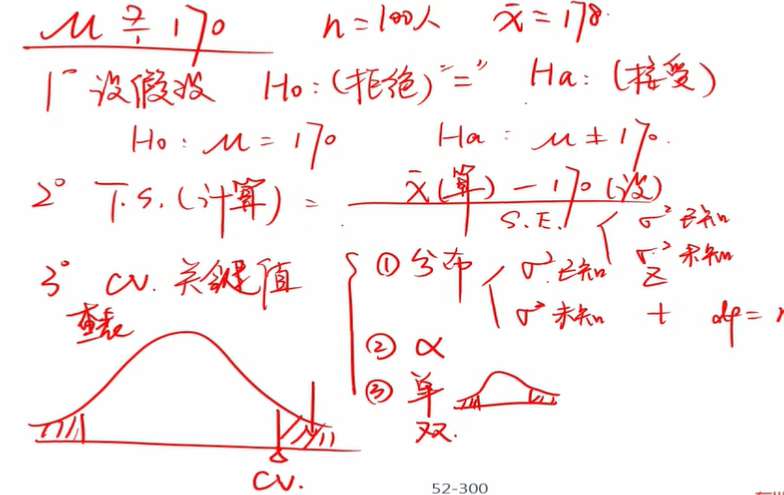 μ ≟ 170 n=100人 x̄=178
1° 设假设 H₀:(拒绝)"=" Ha:(接受)
H₀: μ=170 Ha: μ≠170.
2° T.S.(计算) = x̄(算) - 170(设)
S.E.
σ²已知
σ²未知
3° CV. 关键值
① 分布
σ²已知 Z
σ²未知 t df=
查表
② α
③ 单
双.
CV.
52-300